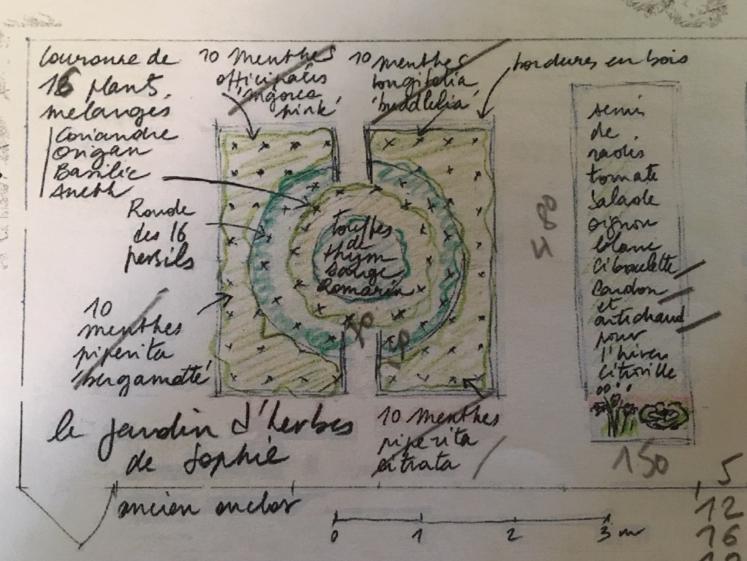 Couronne de
16 plants
mélangés
Coriandre
Origan
Basilic
Aneth
10 Menthes
officinalis
pink'
10 menthes
longifolia
'buddleia'
bordures en bois
Ronde
des 16
persils
touffes
de
thym
Sauge
Romarin
10
menthes
piperita
bergamotte
10 menthes
piperita
citrata
semis
de
radis
tomate
Salade
oignon
blanc
Ciboulette
Cardon
et
artichaud
pour
l'hiver
citrouille
480
150
le jardin d'herbes
de Sophie
ancien enclos
0 1 2 3 m
5
12
16